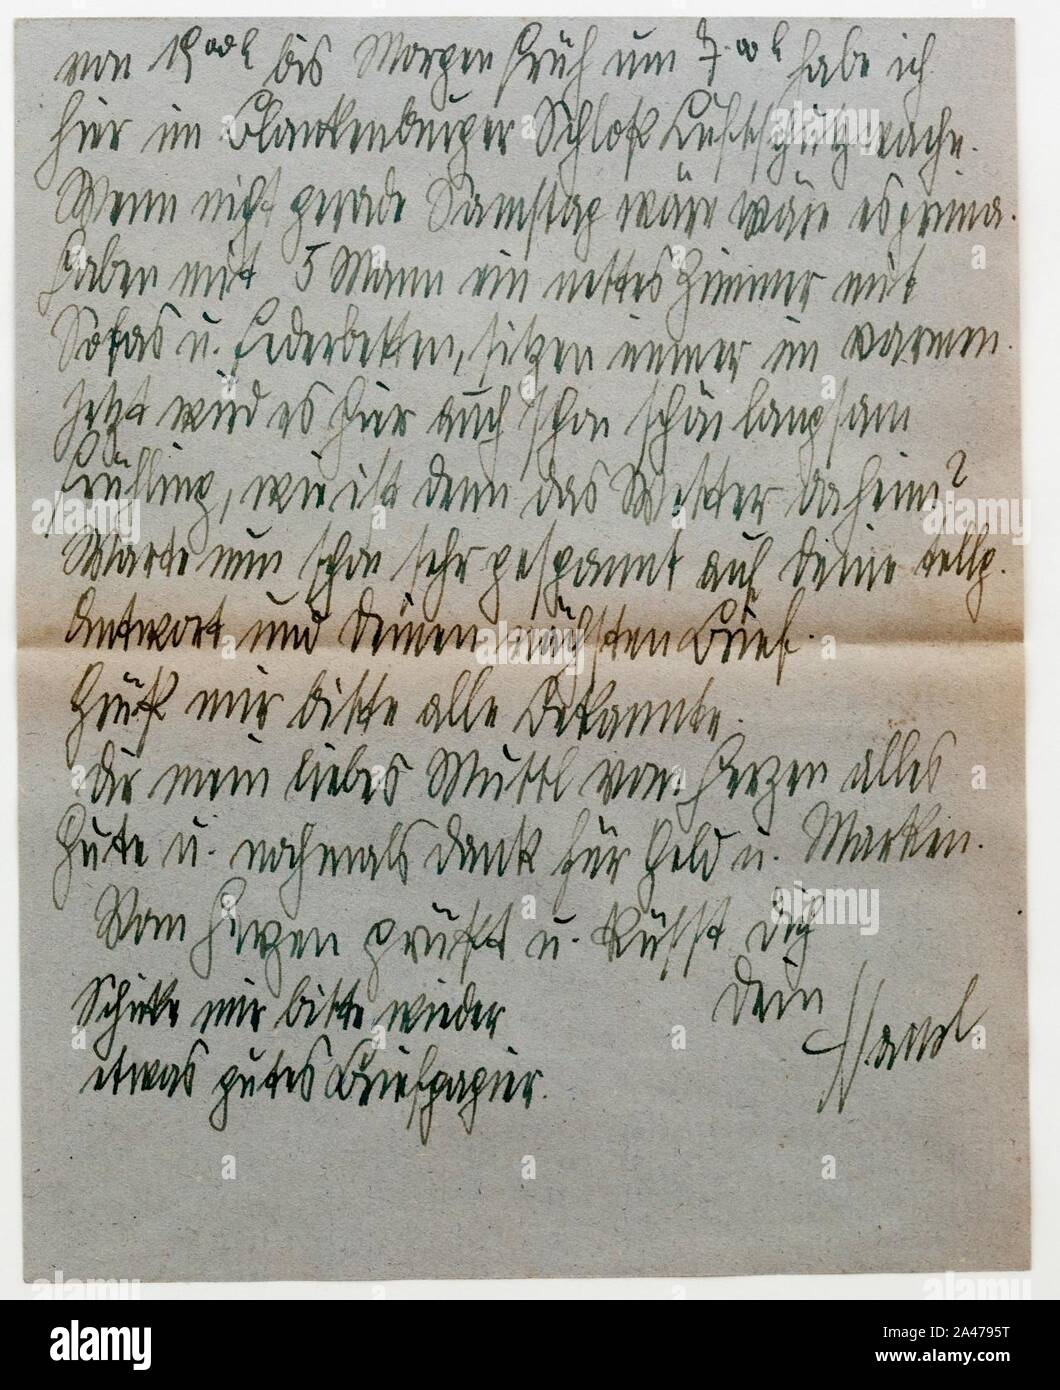 von 19ººh bis Morgen früh um 7.ººh habe ich
hier im Blankenburger Schloß Luftschutzwache.
Wenn nicht gerade Samstag wäre wäre es prima.
Haben mit 5 Mann ein nettes Zimmer mit
Sofas u. Federbetten, sitzen immer im warmen.
Jetzt wird es hier auch schon schön langsam
Frühling, wie ist denn das Wetter daheim?
Warte nun schon sehr gespannt auf Deine
Antwort und Deinen nächsten Brief.
Grüß mir bitte alle Bekannte.
Dir mein liebes Muttl vom Herzen alles
Gute u. nochmals Dank für Geld u. Marken.
Vom Herzen grüßt u. küsst Dich
Dein
Schicke mir bitte wieder
etwas gutes Briefpapier.
alamy
Image ID: 2A4795T
www.alamy.com